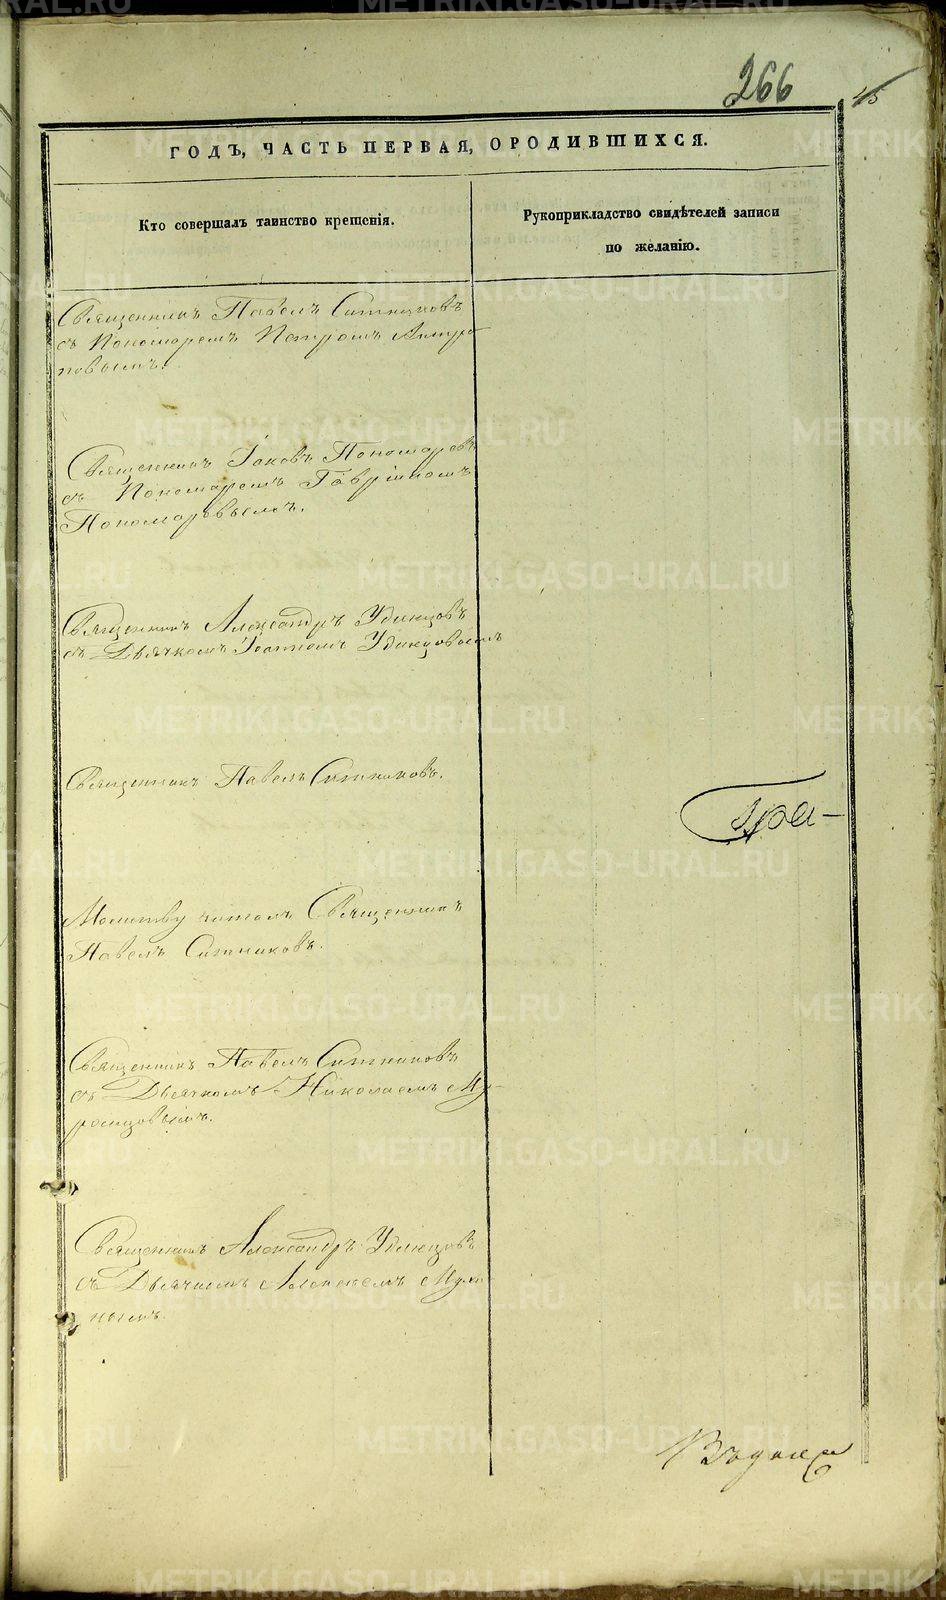 266
45
ГОДЪ, ЧАСТЬ ПЕРВАЯ, ОРОДИВШИХСЯ.
Кто совершалъ таинство крещенія.
Рукоприкладство свидѣтелей записи
по желанію.
Священникъ Павелъ Ситниковъ
съ Пономаремъ Петромъ Антро
повымъ.
Священникъ Іаковъ Пономаревъ
съ Пономаремъ Гавріиломъ
Пономаревымъ.
Священникъ Александръ Удинцовъ
съ Дьячкомъ Іоанномъ Удинцовымъ
Священникъ Павелъ Ситниковъ.
Молитву читалъ Священникъ
Павелъ Ситниковъ.
Священникъ Павелъ Ситниковъ
съ Дьячкомъ Николаемъ Му-
ромцовымъ.
Священникъ Александръ Удинцовъ
съ Дьячкомъ Алексѣемъ Мухи
нымъ.
METRIKI.GASO-URAL.RU